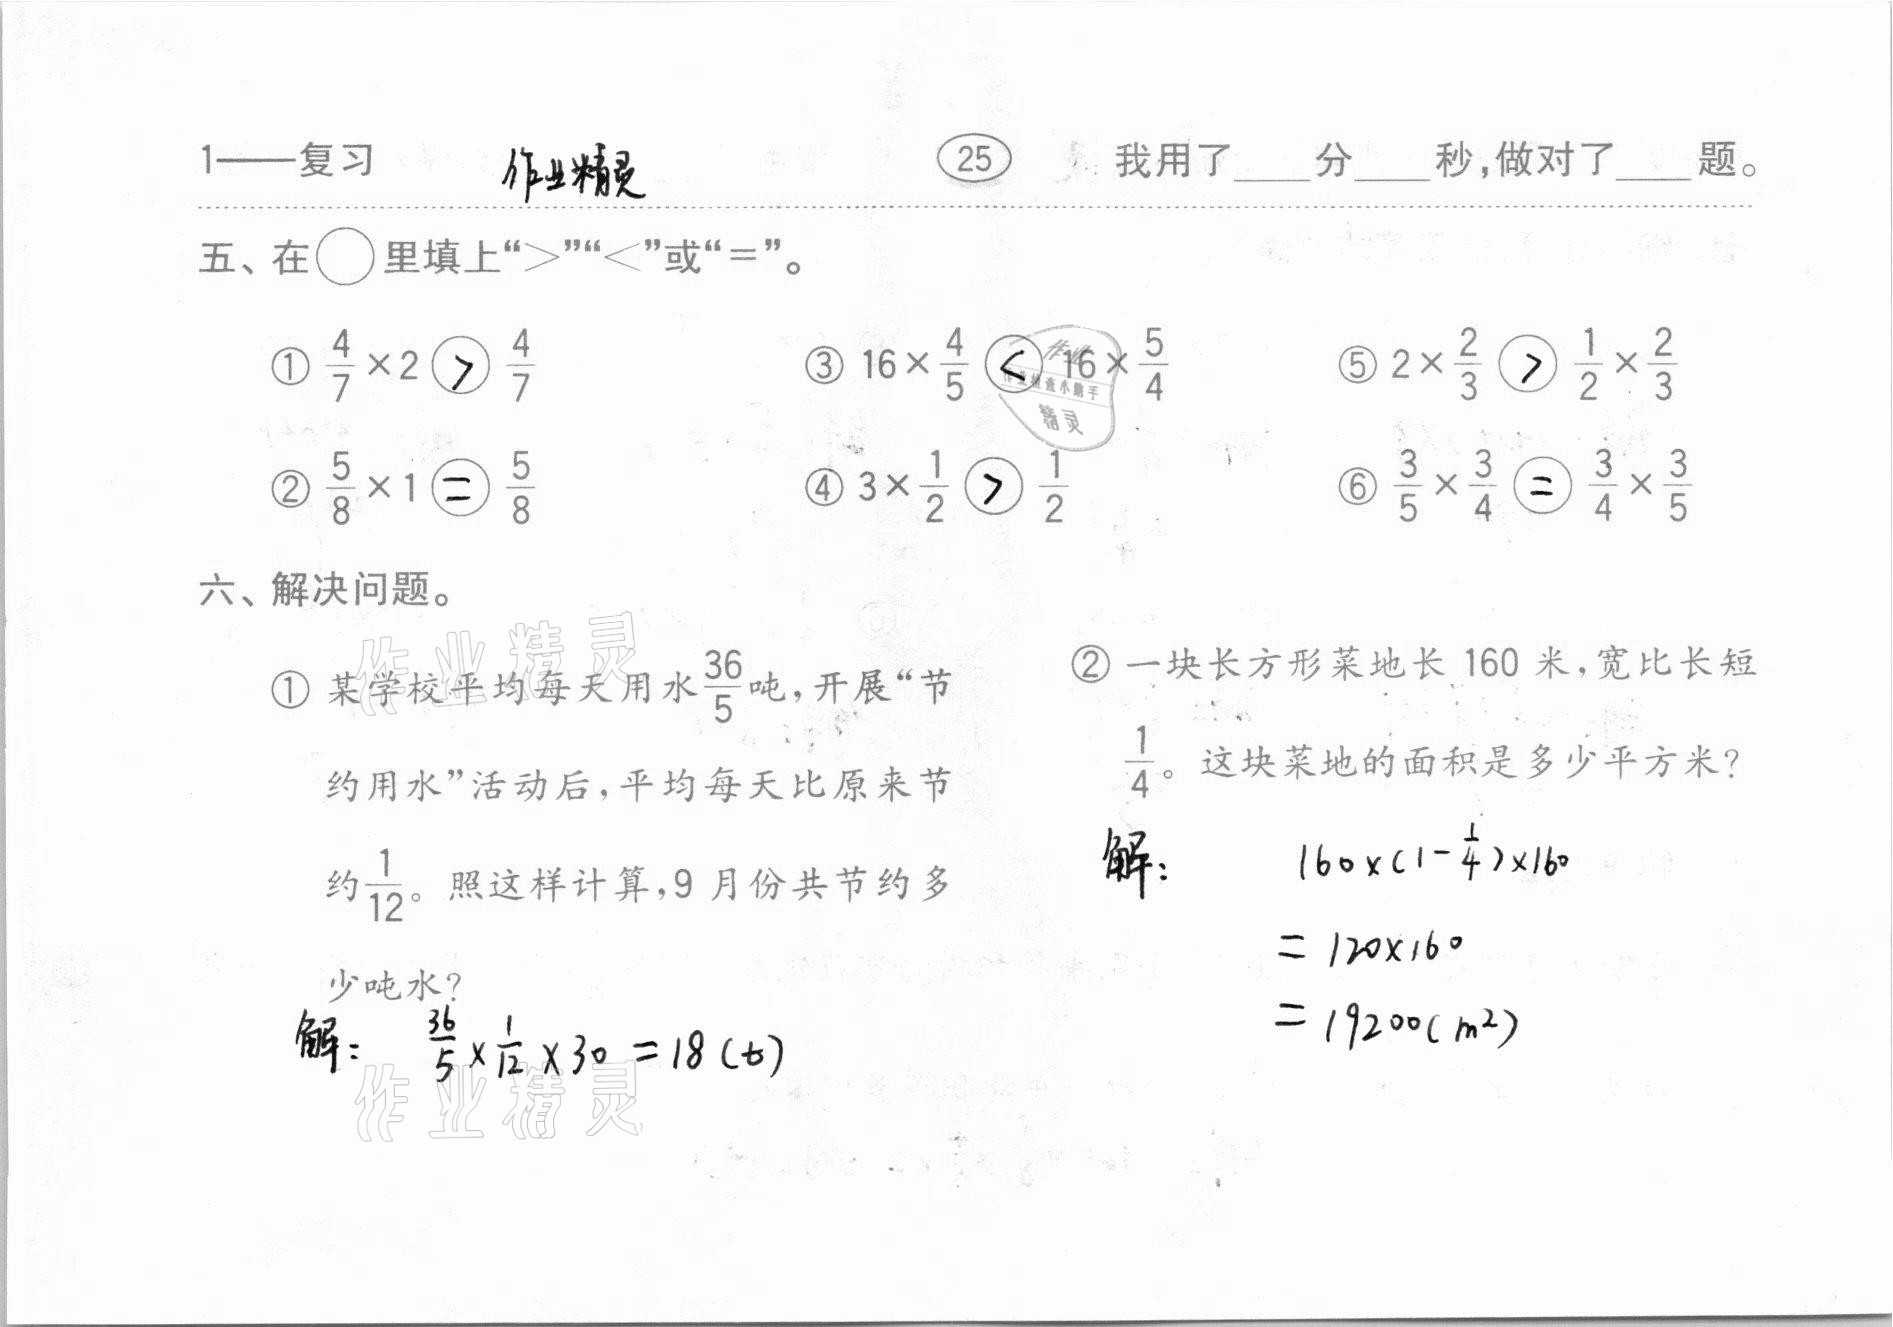 1——复习 作业精灵 25 我用了____分____秒,做对了____题。
五、在○里填上“>”“<”或“=”。
① 4/7 × 2 > 4/7 ③ 16 × 4/5 < 16 × 5/4 ⑤ 2 × 2/3 > 1/2 × 2/3
作业
作业检查小助手
精灵
② 5/8 × 1 = 5/8 ④ 3 × 1/2 > 1/2 ⑥ 3/5 × 3/4 = 3/4 × 3/5
六、解决问题。
作业精灵
① 某学校平均每天用水36/5吨,开展“节
约用水”活动后,平均每天比原来节
约1/12。照这样计算,9月份共节约多
少吨水?
解: 36/5 × 1/12 × 30 = 18 (t)
作业精灵
② 一块长方形菜地长 160 米,宽比长短
1/4。这块菜地的面积是多少平方米?
解: 160×(1-1/4)×160
= 120×160
= 19200(m²)